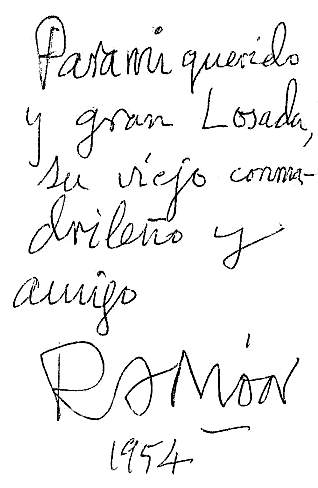 Para mi querido
y gran Losada,
su viejo conma-
drileño y
amigo
RAMÓN
1954